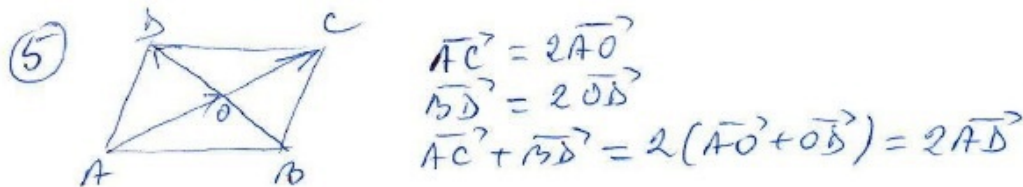 5
D C
O
A B
AC = 2AO
BD = 2OD
AC + BD = 2(AO + OD) = 2AD